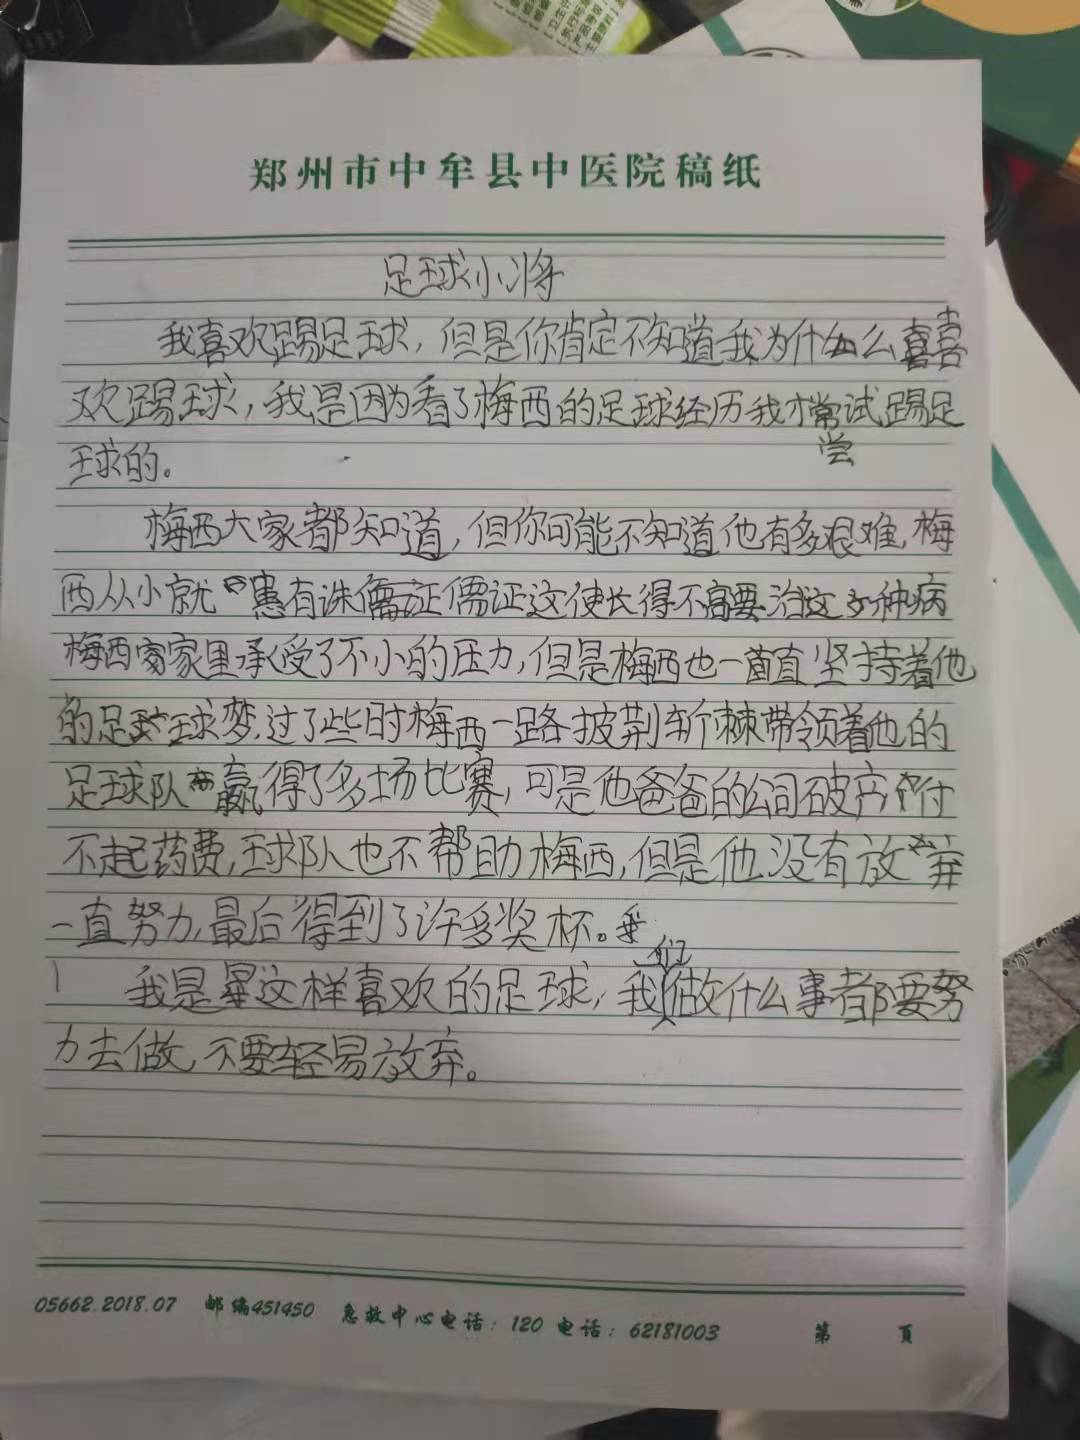 郑州市中牟县中医院稿纸
足球小将
我喜欢踢足球，但是你肯定不知道我为什么喜
欢踢球，我是因为看了梅西的足球经历我才尝试踢足
球的。
梅西大家都知道，但你可能不知道他有多艰难，梅
西从小就患有诛儒证这使长得不高要治这种病
梅西家里承受了不小的压力，但是梅西也一直坚持着他
的足球梦，过了些时梅西一路披荆斩棘带领着他的
足球队赢得了多场比赛，可是他爸爸的公司破产付
不起药费，球队也不帮助梅西，但是他没有放弃
一直努力，最后得到了许多奖杯。
我是这样喜欢的足球，我们做什么事都要努
力去做，不要轻易放弃。
05662.2018.07 邮编451450 急救中心电话：120 电话：62181003 第 页